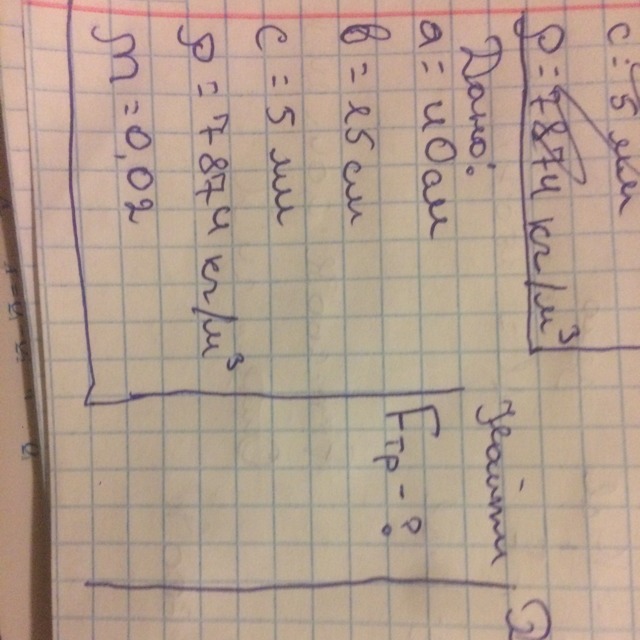 c = 5 мм
ρ = 7874 кг/м³
Дано:
a = 40 см
b = 25 см
c = 5 мм
ρ = 7874 кг/м³
M = 0,02
Найти
Fтр - ?